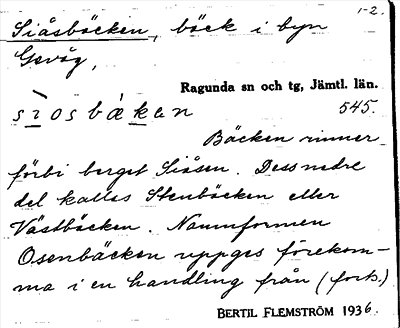 1-2.
Siåsbäcken, bäck i byn
Gevåg,
Ragunda sn och tg, Jämtl. län.
545.
Bäcken rinner
förbi berget Siåsen. Dess nedre
del kallas Stenbäcken eller
Västbäcken. Namnformen
Osenbäcken uppges förekom-
ma i en handling från (forts.)
BERTIL FLEMSTRÖM 1936.